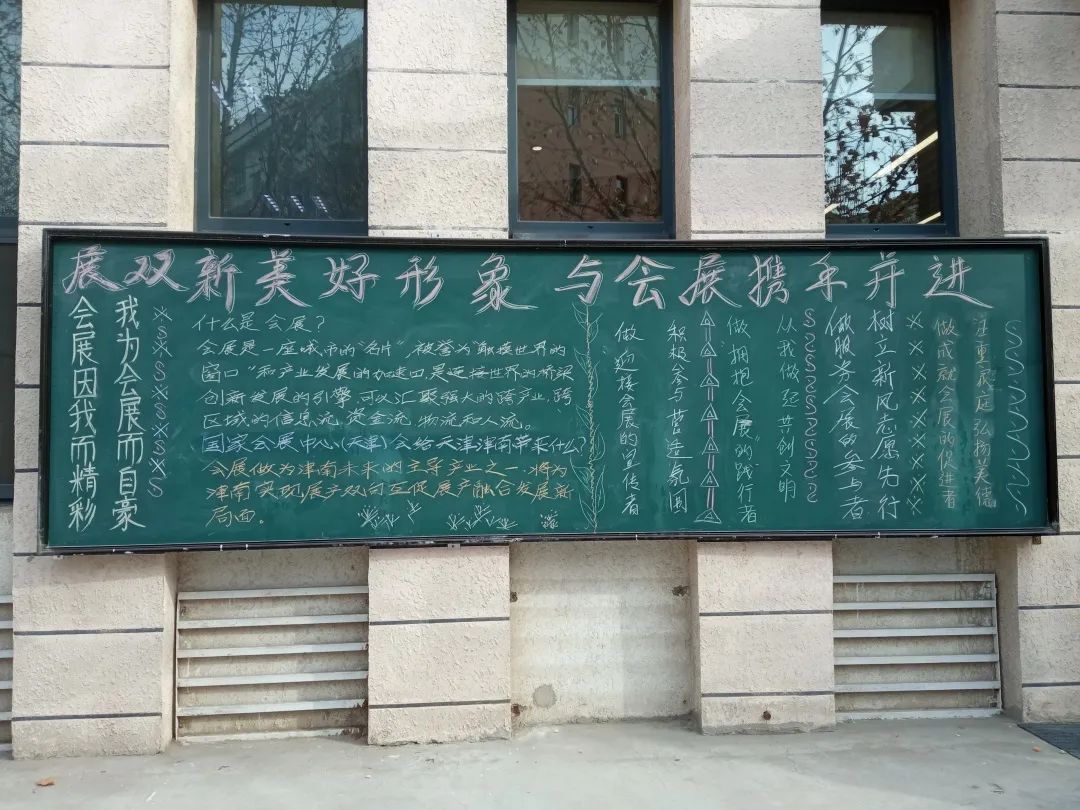 展双新美好形象 与会展携手并进
我为会展而自豪
会展因我而精彩
什么是会展?
会展是一座城市的“名片”,被誉为“触摸世界的
窗口”和产业发展的加速口,是连接世界的桥梁
创新发展的引擎,可以汇聚强大的跨产业、跨
区域的信息流、资金流、物流和人流。
国家会展中心(天津)会给天津津南带来什么?
会展做为津南未来的主导产业之一,将为
津南实现,展产双向互促展产融合发展新
局面。
做“迎接会展”的宣传者
积极参与 营造氛围
做“拥抱会展”的践行者
从我做起 共创文明
做服务会展的参与者
树立新风 志愿先行
做成就会展的促进者
注重家庭 弘扬美德